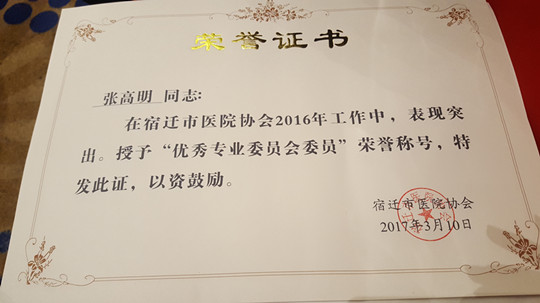 荣誉证书
张高明 同志:
在宿迁市医院协会2016年工作中，表现突
出。授予“优秀专业委员会委员”荣誉称号，特
发此证，以资鼓励。
宿迁市医院协会
2017年3月10日